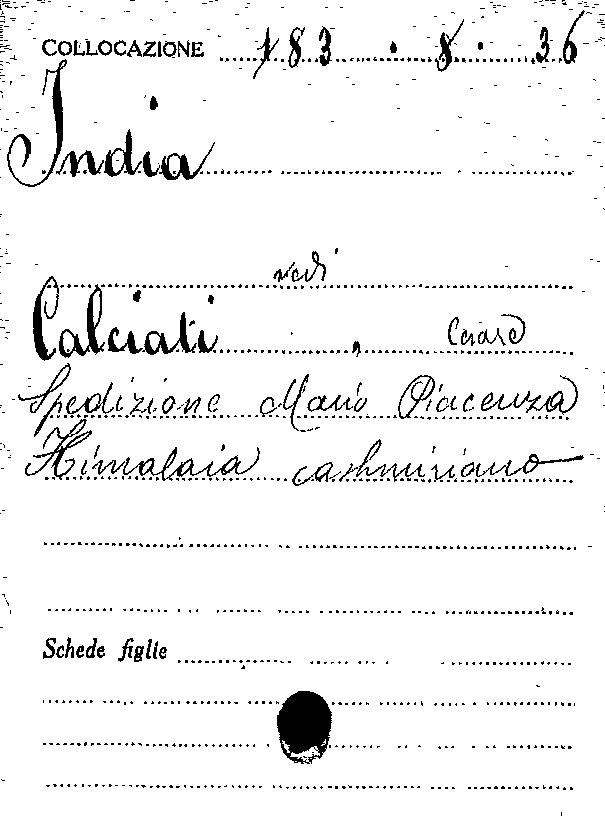 COLLOCAZIONE 183 . 8 . 36
India
vedi
Calciati, Cesare
Spedizione Mario Piacenza
Himalaia cashmiriano
Schede figlie